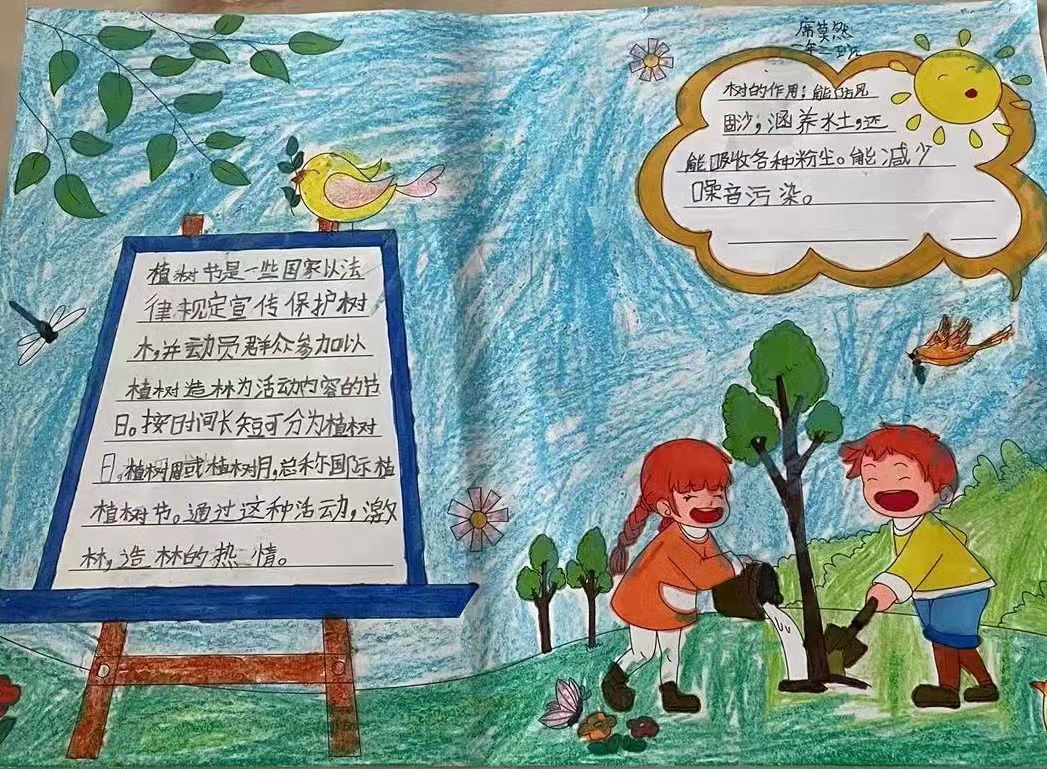 植树节是一些国家以法
律规定宣传保护树
木,并动员群众参加以
植树造林为活动内容的节
日。按时间长短可分为植树
日,植树周或植树月,总称国际植
植树节。通过这种活动,激
林,造林的热情。
席莫然
一年一班
树的作用:能防风
固沙,涵养水土,还
能吸收各种粉尘。能减少
噪音污染。